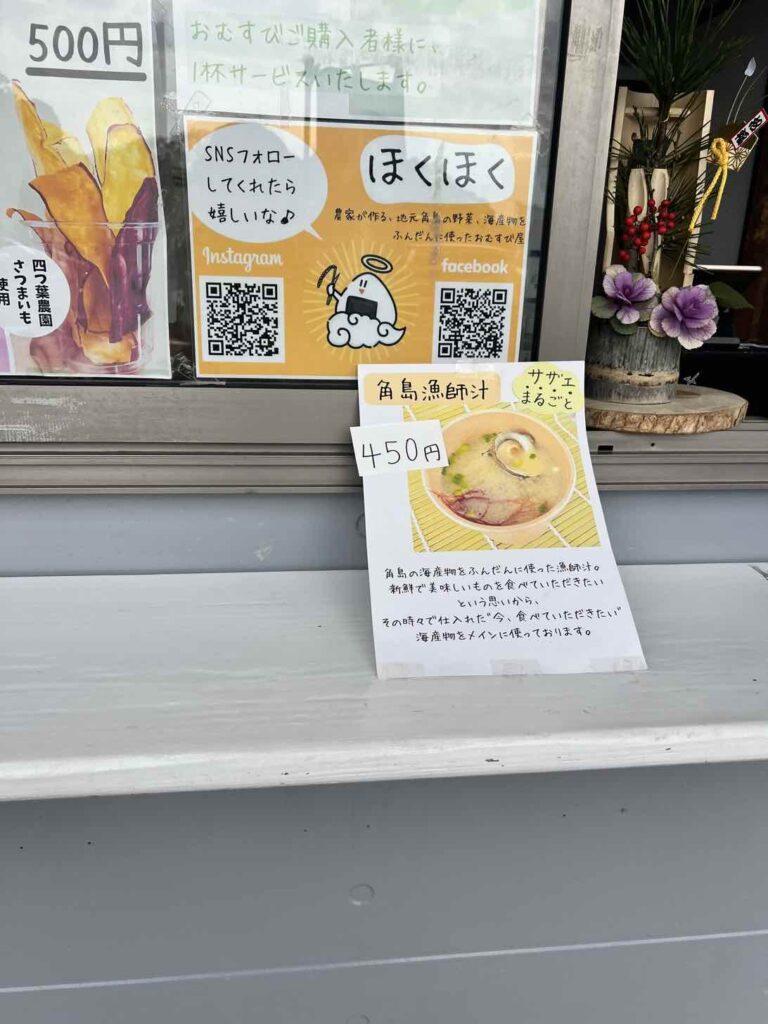 500円
四つ葉農園
さつまいも
使用
おむすびご購入者様に、
1杯サービスいたします。
SNSフォロー
してくれたら
嬉しいな♪
ほくほく
農家が作る、地元角島の野菜、海産物を
ふんだんに使ったおむすび屋
Instagram
facebook
角島漁師汁
サザエ
まるごと
450円
角島の海産物をふんだんに使った漁師汁。
新鮮で美味しいものを食べていただきたい
という思いから、
その時々で仕入れた"今、食べていただきたい"
海産物をメインに使っております。